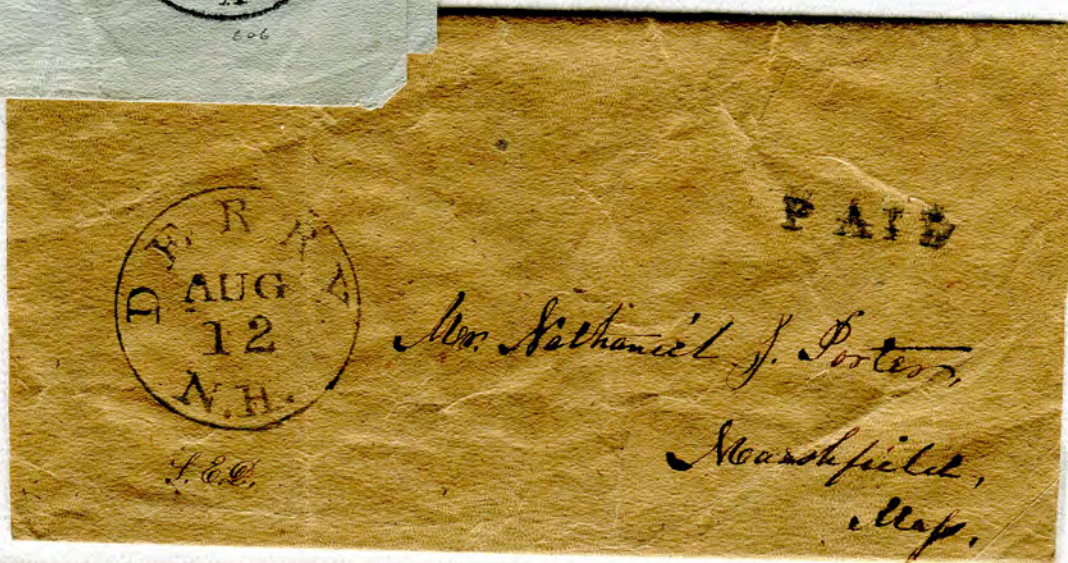 606
DERRY
AUG
12
N.H.
PAID
Mr. Nathaniel J. Porter,
Marshfield,
Mass.